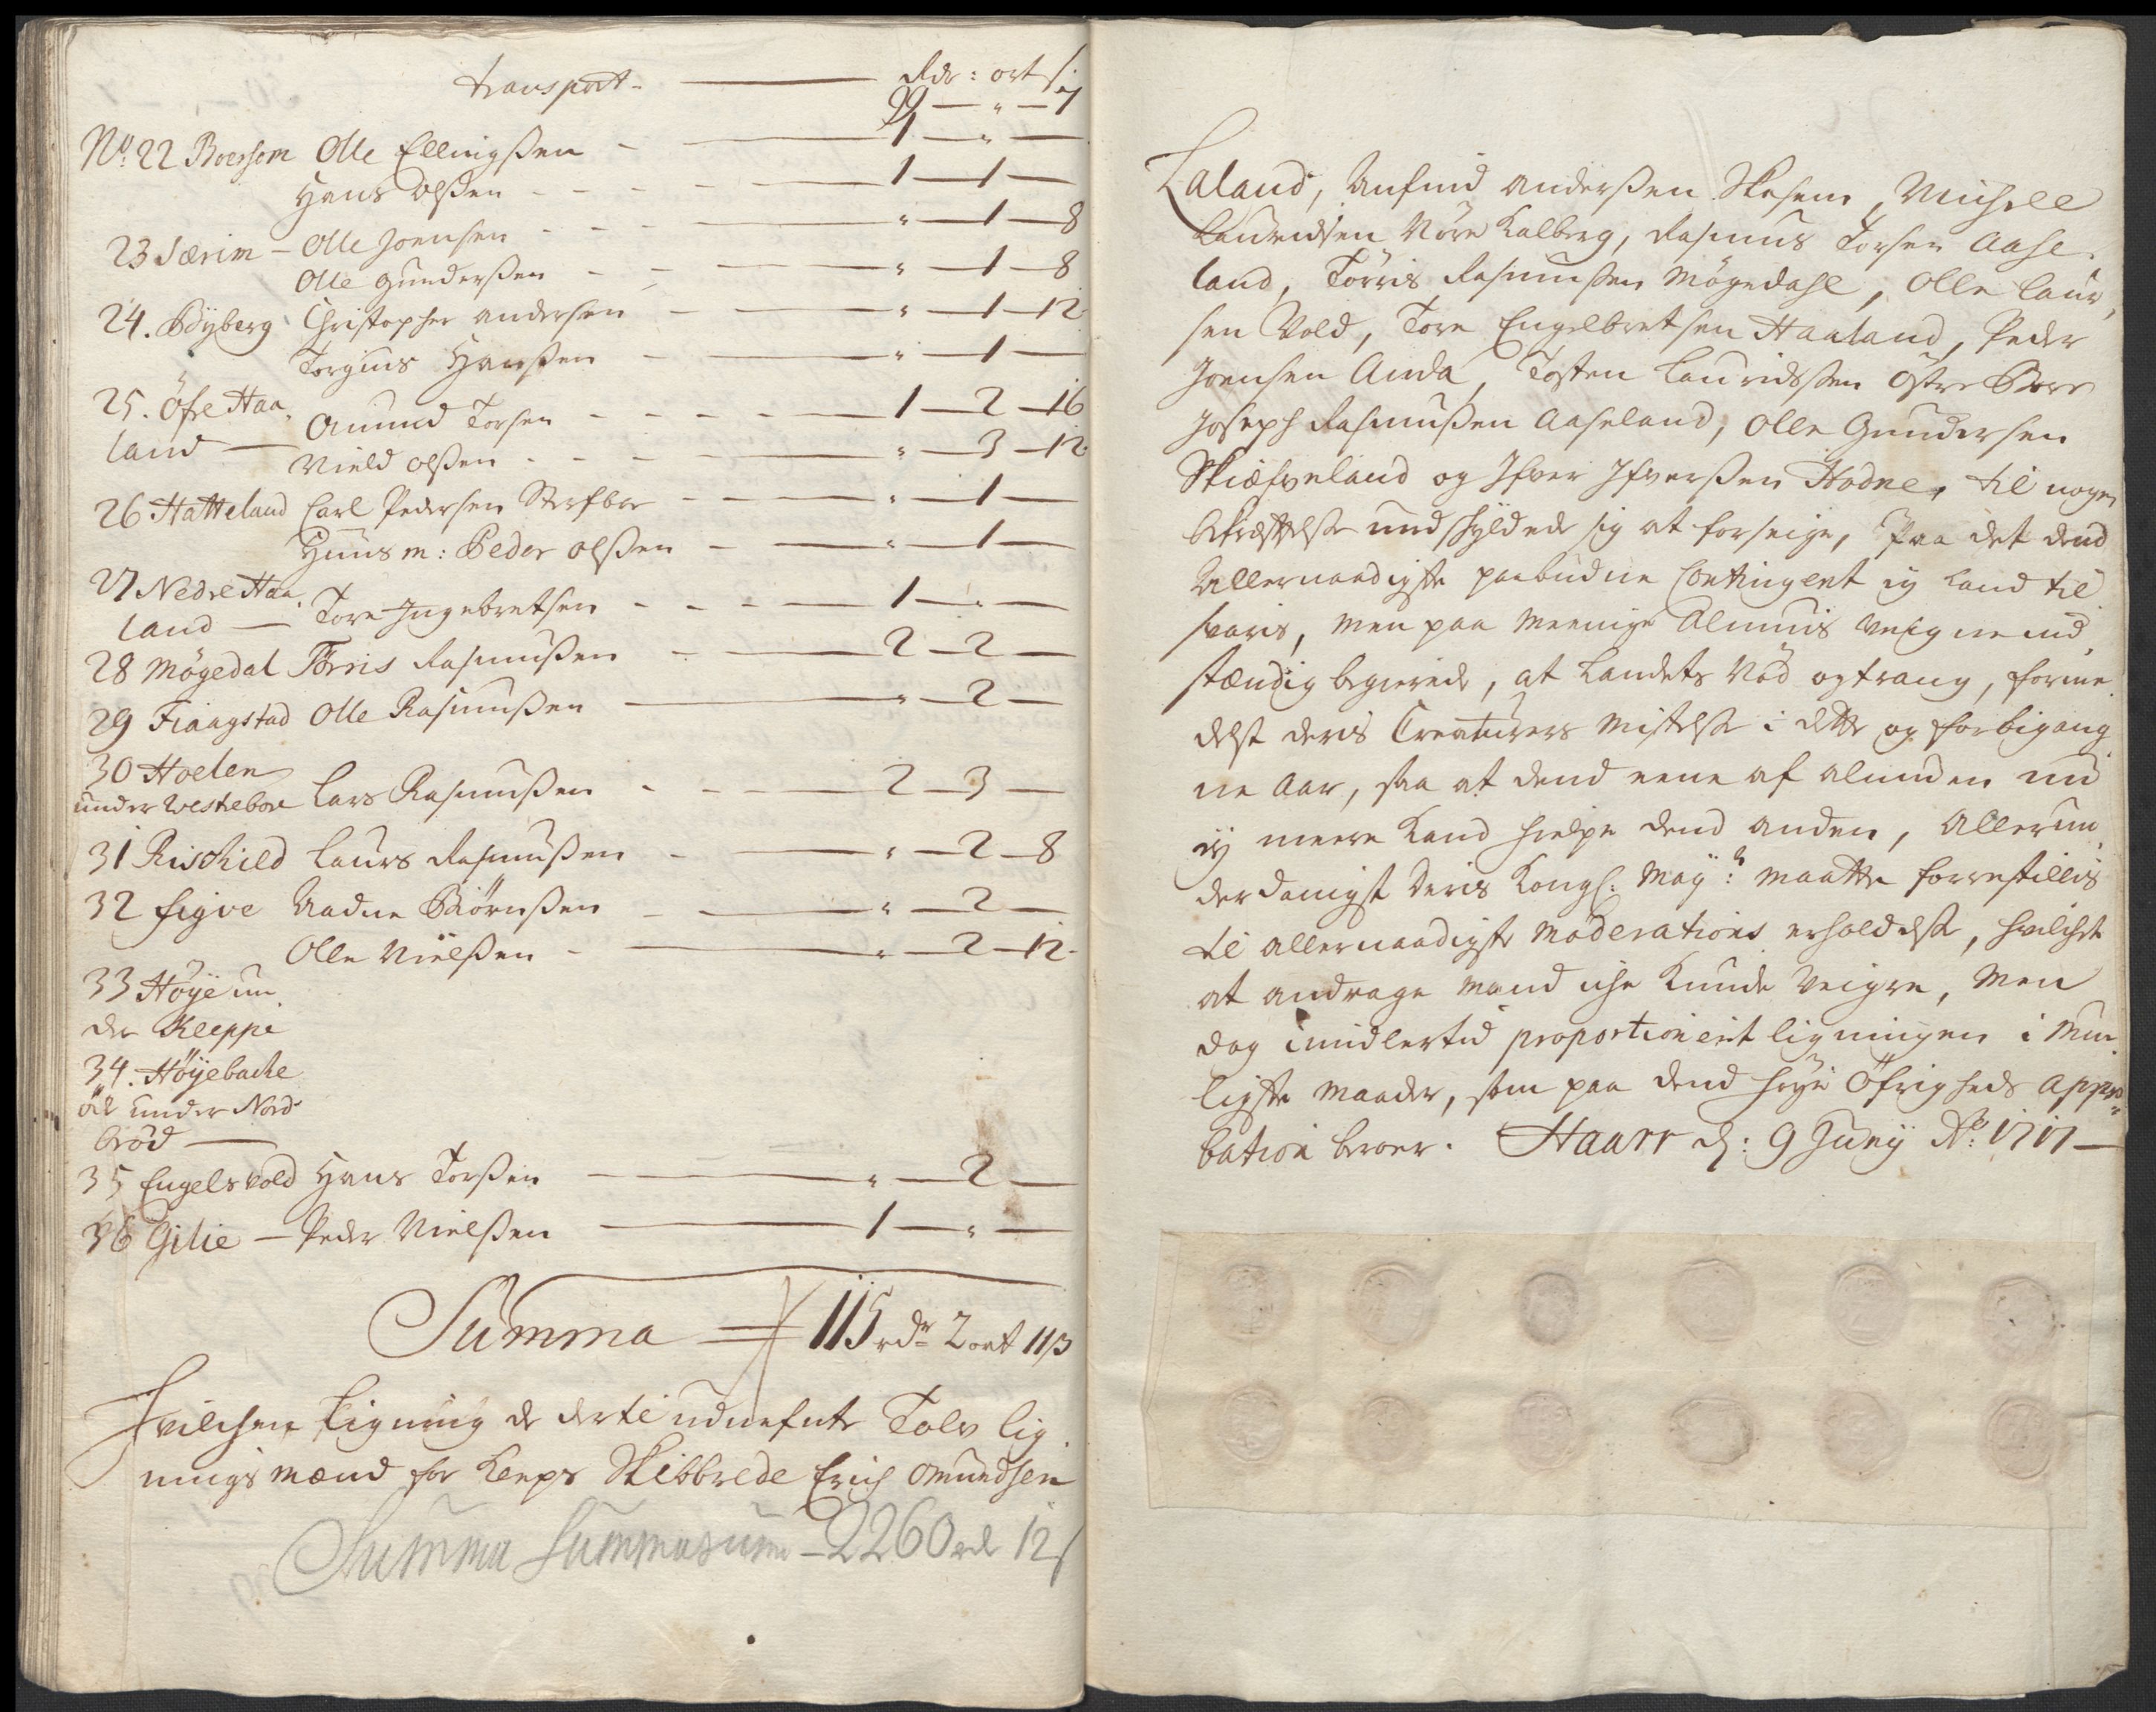 Transport - Rdr: ort s:
99 — " — 7
No: 22 Boersom Olle Ellingsßen - 1 — " —
Hans Olßen - 1 — 1 —
23 Særim - Olle Joensen - " — 1 — 8
Olle Gunderßen - " — 1 — 8
24. Bdÿberg Christopher Andersen - " — 1 — 12
Torgius Hansßen - " — 1 —
25. Öfre Haa
land — Amund Torsen - 1 — 2 — 16
Nield Olßen - " — 3 — 12
26 Hatteland Carl Pedersen - " — 1 —
Huusm: Peder Olßen - " — 1 —
27 Nedre Haa
land — Tore Ingebretsen - 1 — " —
28 Møgedal Törris Rasmußen - 2 — 2 —
29 Fiaagstad Olle Rasmußen - " — 2 —
30 Hoelen
under Westrebore Lars Rasmußen - 2 — 3 —
31 Rischild Laurs Rasmußen - " — 2 — 8
32 Figve Aadne Biörnßen - " — 2 —
Olle Nielßen - " — 2 — 12
33 Höÿe un
der Kleppe
34. Höÿebache
öde under Nord
brød —
35 Engelsvold Hans Torßen - " — 2 —
36 Gilie — Peder Nielßen - 1 — " —
Summa = 115 rdr 2 ort 11 ß
Hvilchen Ligning de dertil udnefnte Tolv lig
nings mænd for Kleps Skibbrede Erich Omundsen
Summa Summarum - 2260 rd 12 s
Laland, Anfind Anderßen Skasem, Michell
Lauridsen Nöre Kalberg, Rasmus Torsen Aase
land, Törris Rasmussen Møgedahl, Olle Laur
sen Vold, Tore Engelbretsen Haaland, Peder
Joensen Anda, Tosten Lauridsßen Östre Bore
Joseph Rasmußen Aaseland, Olle Gundersen
Skiæfveland og Ifver Ifverßen Hodne, til nogen
undschÿldede sig at forseigle, Paa det dend
Allernaadigste paabudne Contingent ej kand til
svaris, men paa Meenige Almuis veigne ind
stændig begierede, at Landets Nöd og trang, forme
delst deris Creaturers Mistelse i dette og forbigang
ne Aar, saa at dend eene af Almuen nu
ej meere kand hielpe dend anden, Allerun
derdanigst Deris Kongl: Maÿ:t maatte forrestillis
til allernaadigste Moderations erholdelse, hvilchet
at andrage mand iche kunde veigre, Men
dog imidlertid proportionerit ligningen i Mue
ligste Maader, som paa dend höÿe Öfrigheds Appro
bation beroer. Haarr d: 9 Junÿ Ao: 1717 —